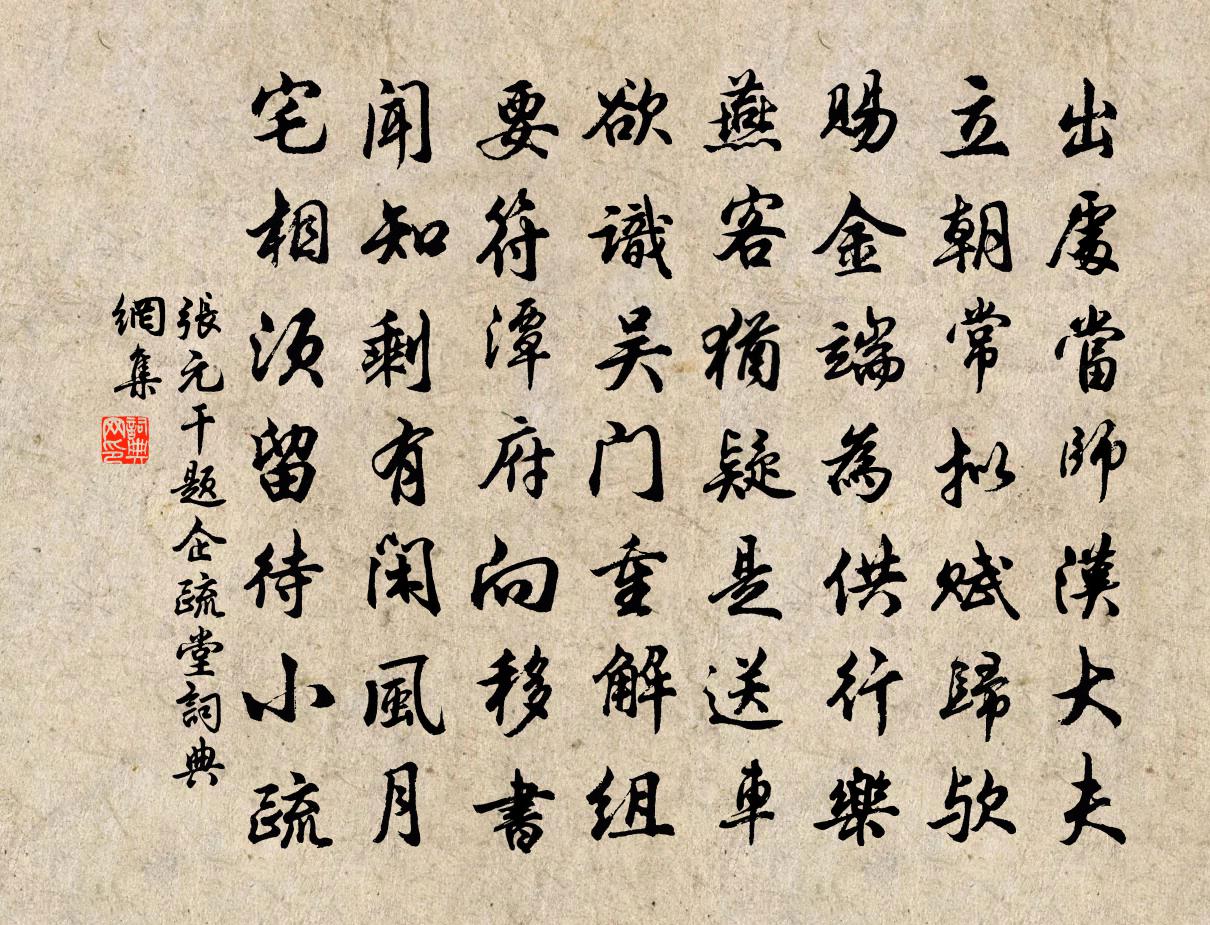 出處當師漢大夫
立朝常拟賦歸欤
賜金端為供行樂
燕客猶疑是送車
欲識吴门重解組
要符潭府向移書
聞知剩有閑風月
宅相须留待小疏
張元干题企疏堂詞典
網集
詞典
网印